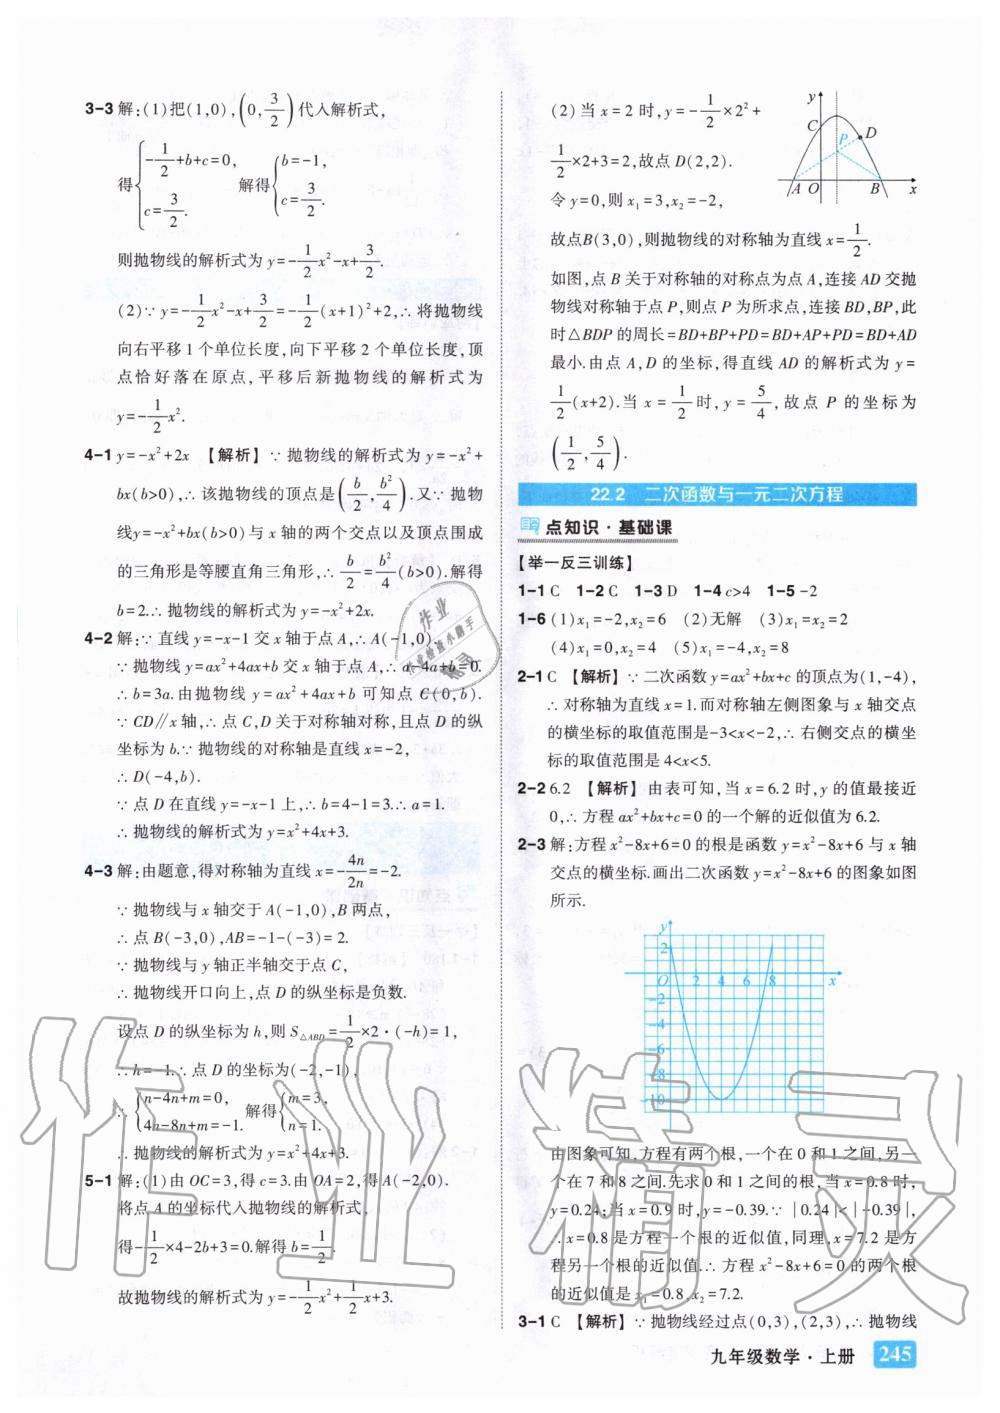 3-3 解:(1)把(1,0),(0,3/2)代入解析式,
得{-1/2+b+c=0, c=3/2. 解得{b=-1, c=3/2.
则抛物线的解析式为 y=-1/2x²-x+3/2.
(2)∵y=-1/2x²-x+3/2=-1/2(x+1)²+2,∴将抛物线
向右平移1个单位长度,向下平移2个单位长度,顶
点恰好落在原点,平移后新抛物线的解析式为
y=-1/2x².
4-1 y=-x²+2x 【解析】∵抛物线的解析式为 y=-x²+
bx(b>0),∴该抛物线的顶点是(b/2,b²/4).又∵抛物
线y=-x²+bx(b>0)与 x 轴的两个交点以及顶点围成
的三角形是等腰直角三角形,∴b/2=b²/4(b>0).解得
b=2.∴抛物线的解析式为 y=-x²+2x.
4-2 解:∵直线 y=-x-1 交 x 轴于点 A,∴A(-1,0).
∵抛物线 y=ax²+4ax+b 交 x 轴于点 A,∴a-4a+b=0.
∴b=3a.由抛物线 y=ax²+4ax+b 可知点 C(0,b).
∵CD∥x 轴,∴点 C,D 关于对称轴对称,且点 D 的纵
坐标为 b.∵抛物线的对称轴是直线 x=-2,
∴D(-4,b).
∵点 D 在直线 y=-x-1 上,∴b=4-1=3.∴a=1.
∴抛物线的解析式为 y=x²+4x+3.
4-3 解:由题意,得对称轴为直线 x=-4n/2n=-2.
∵抛物线与 x 轴交于 A(-1,0),B 两点,
∴点 B(-3,0),AB=-1-(-3)=2.
∵抛物线与 y 轴正半轴交于点 C,
∴抛物线开口向上,点 D 的纵坐标是负数.
设点 D 的纵坐标为 h,则 S△ABD=1/2×2·(-h)=1,
∴h=-1.∴点 D 的坐标为(-2,-1).
∴{n-4n+m=0, 4n-8n+m=-1. 解得{m=3, n=1.
∴抛物线的解析式为 y=x²+4x+3.
5-1 解:(1)由 OC=3,得 c=3.由 OA=2,得 A(-2,0).
将点 A 的坐标代入抛物线的解析式,
得-1/2×4-2b+3=0.解得 b=1/2.
故抛物线的解析式为 y=-1/2x²+1/2x+3.
(2)当 x=2 时,y=-1/2×2²+
1/2×2+3=2,故点 D(2,2).
令 y=0,则 x₁=3,x₂=-2,
y
C
P
D
A O B x
故点B(3,0),则抛物线的对称轴为直线 x=1/2.
如图,点 B 关于对称轴的对称点为点 A,连接 AD 交抛
物线对称轴于点 P,则点 P 为所求点,连接 BD,BP,此
时△BDP 的周长=BD+BP+PD=BD+AP+PD=BD+AD
最小.由点 A,D 的坐标,得直线 AD 的解析式为 y=
1/2(x+2).当 x=1/2时,y=5/4,故点 P 的坐标为
(1/2,5/4).
22.2 二次函数与一元二次方程
点知识·基础课
【举一反三训练】
1-1 C 1-2 C 1-3 D 1-4 c>4 1-5 -2
1-6 (1)x₁=-2,x₂=6 (2)无解 (3)x₁=x₂=2
(4)x₁=0,x₂=4 (5)x₁=-4,x₂=8
2-1 C 【解析】∵二次函数 y=ax²+bx+c 的顶点为(1,-4),
∴对称轴为直线 x=1.而对称轴左侧图象与 x 轴交点
的横坐标的取值范围是-3<x<-2,∴右侧交点的横坐
标的取值范围是 4<x<5.
2-2 6.2 【解析】由表可知,当 x=6.2 时,y 的值最接近
0,∴方程 ax²+bx+c=0 的一个解的近似值为 6.2.
2-3 解:方程 x²-8x+6=0 的根是函数 y=x²-8x+6 与 x 轴
交点的横坐标.画出二次函数 y=x²-8x+6 的图象如图
所示.
y
2
O 2 4 6 8 x
-2
-4
-6
-8
-10
由图象可知,方程有两个根,一个在 0 和 1 之间,另一
个在 7 和 8 之间.先求 0 和 1 之间的根,当 x=0.8 时,
y=0.24;当 x=0.9 时,y=-0.39.∵|0.24|<|-0.39|,
∴x=0.8 是方程一个根的近似值,同理,x=7.2 是方
程另一个根的近似值.∴方程 x²-8x+6=0 的两个根
的近似值是 x₁=0.8,x₂=7.2.
3-1 C 【解析】∵抛物线经过点(0,3),(2,3),∴抛物线
九年级数学·上册 245
作业精灵